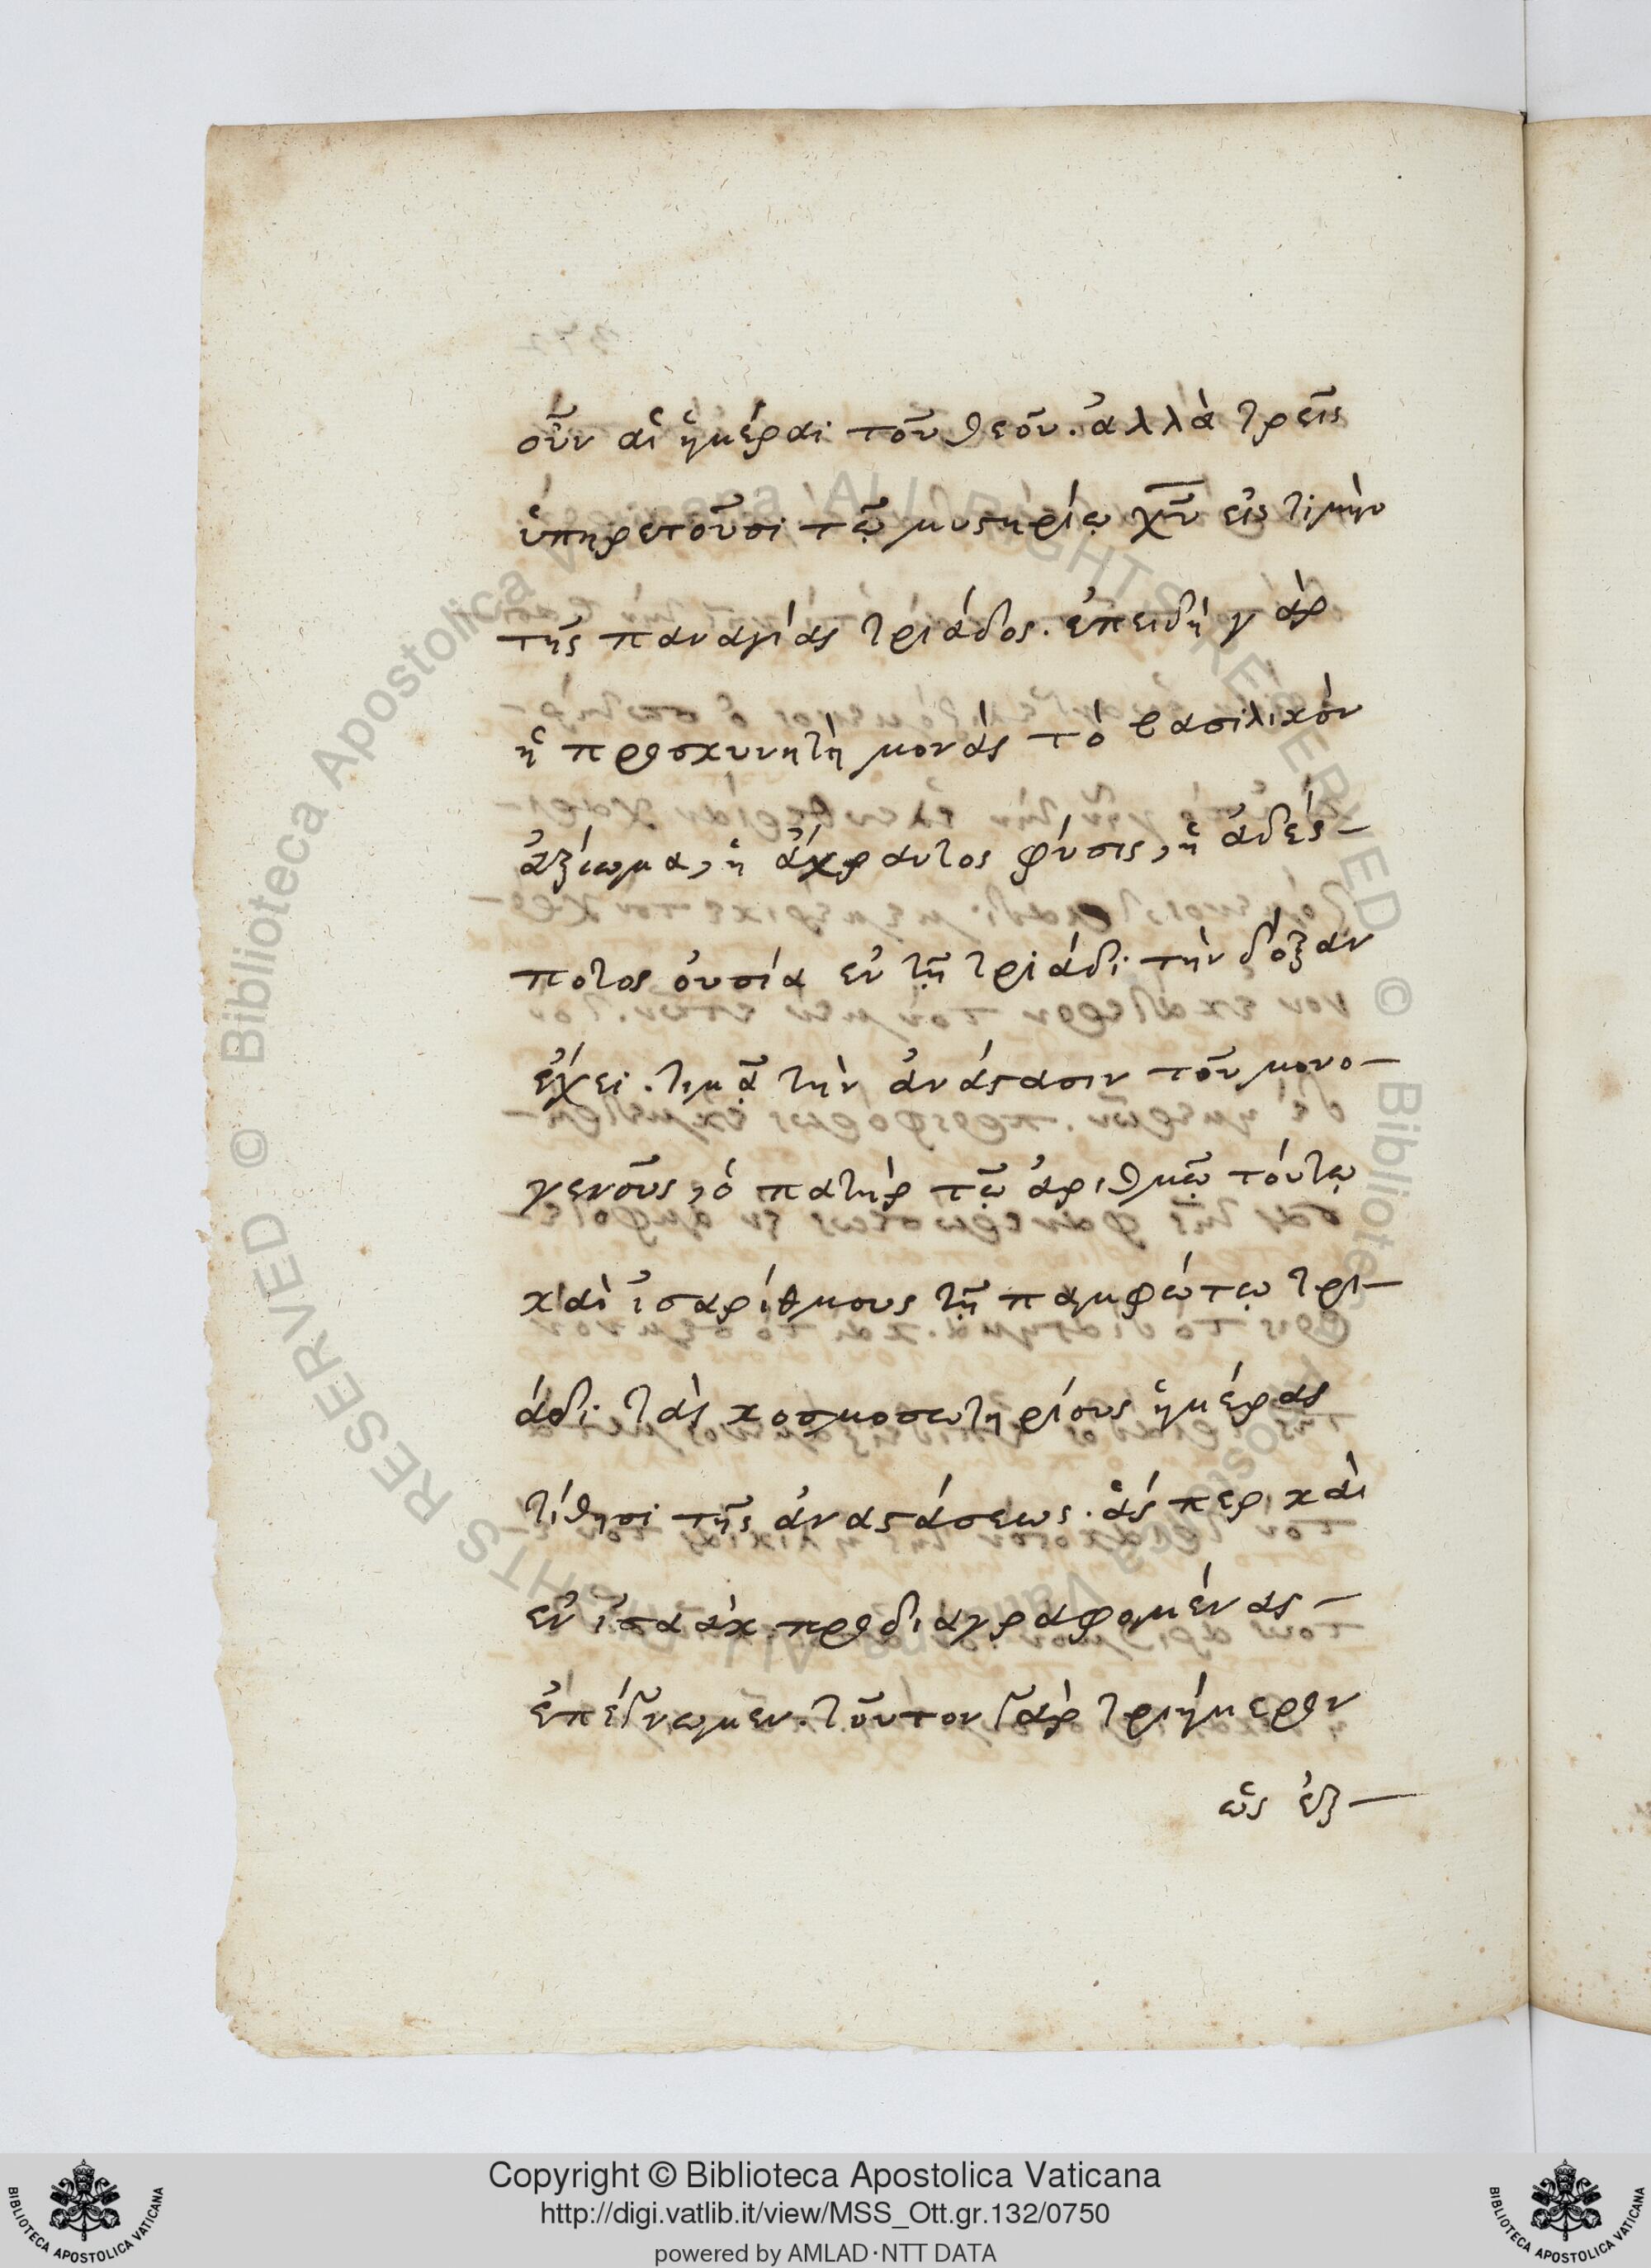 οὖν αἱ ἡμέραι τοῦ θεοῦ. ἀλλὰ τρεῖς
ὑπηρετοῦσι τῷ μυστηρίῳ χῦ εἰς τιμὴν
τῆς παναγίας τριάδος. ἐπειδὴ γὰρ
ἡ προσκυνητὴ μονὰς τὸ βασιλικὸν
ἀξίωμα, ἡ ἄχραντος φύσις, ἡ ἀδέσ-
ποτος οὐσία ἐν τῇ τριάδι τὴν δόξαν
ἔχει. τιμᾷ τὴν ἀνάστασιν τοῦ μονο-
γενοῦς, ὁ πατὴρ τῷ ἀριθμῷ τούτῳ
καὶ ἰσαρίθμους τῇ παμφώτῳ τρι-
άδι τὰς κοσμοσωτηρίους ἡμέρας
τίθησι τῆς ἀναστάσεως. ἅς περ καὶ
ἐν ἰσαὰκ προδιαγραφομένας
ἐπέγνωμεν. τοῦτον γὰρ τριήμερον
ὡς ἐξ-
Copyright © Biblioteca Apostolica Vaticana
http://digi.vatlib.it/view/MSS_Ott.gr.132/0750
powered by AMLAD·NTT DATA
BIBLIOTECA APOSTOLICA VATICANA
BIBLIOTECA APOSTOLICA VATICANA